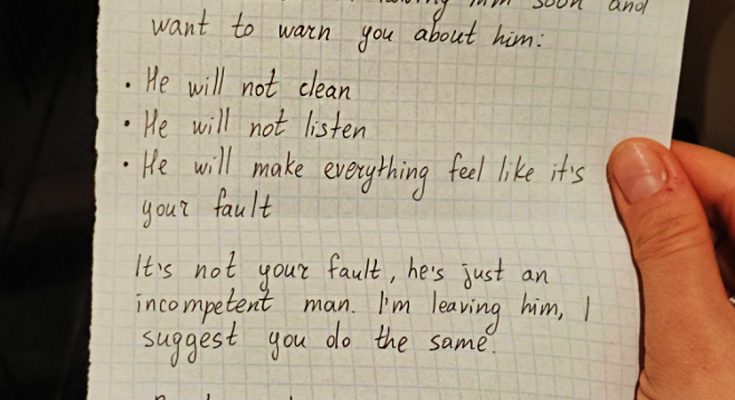 him soon and
want to warn you about him:
• He will not clean
• He will not listen
• He will make everything feel like it's
your fault
It's not your fault, he's just an
incompetent man. I'm leaving him, I
suggest you do the same.